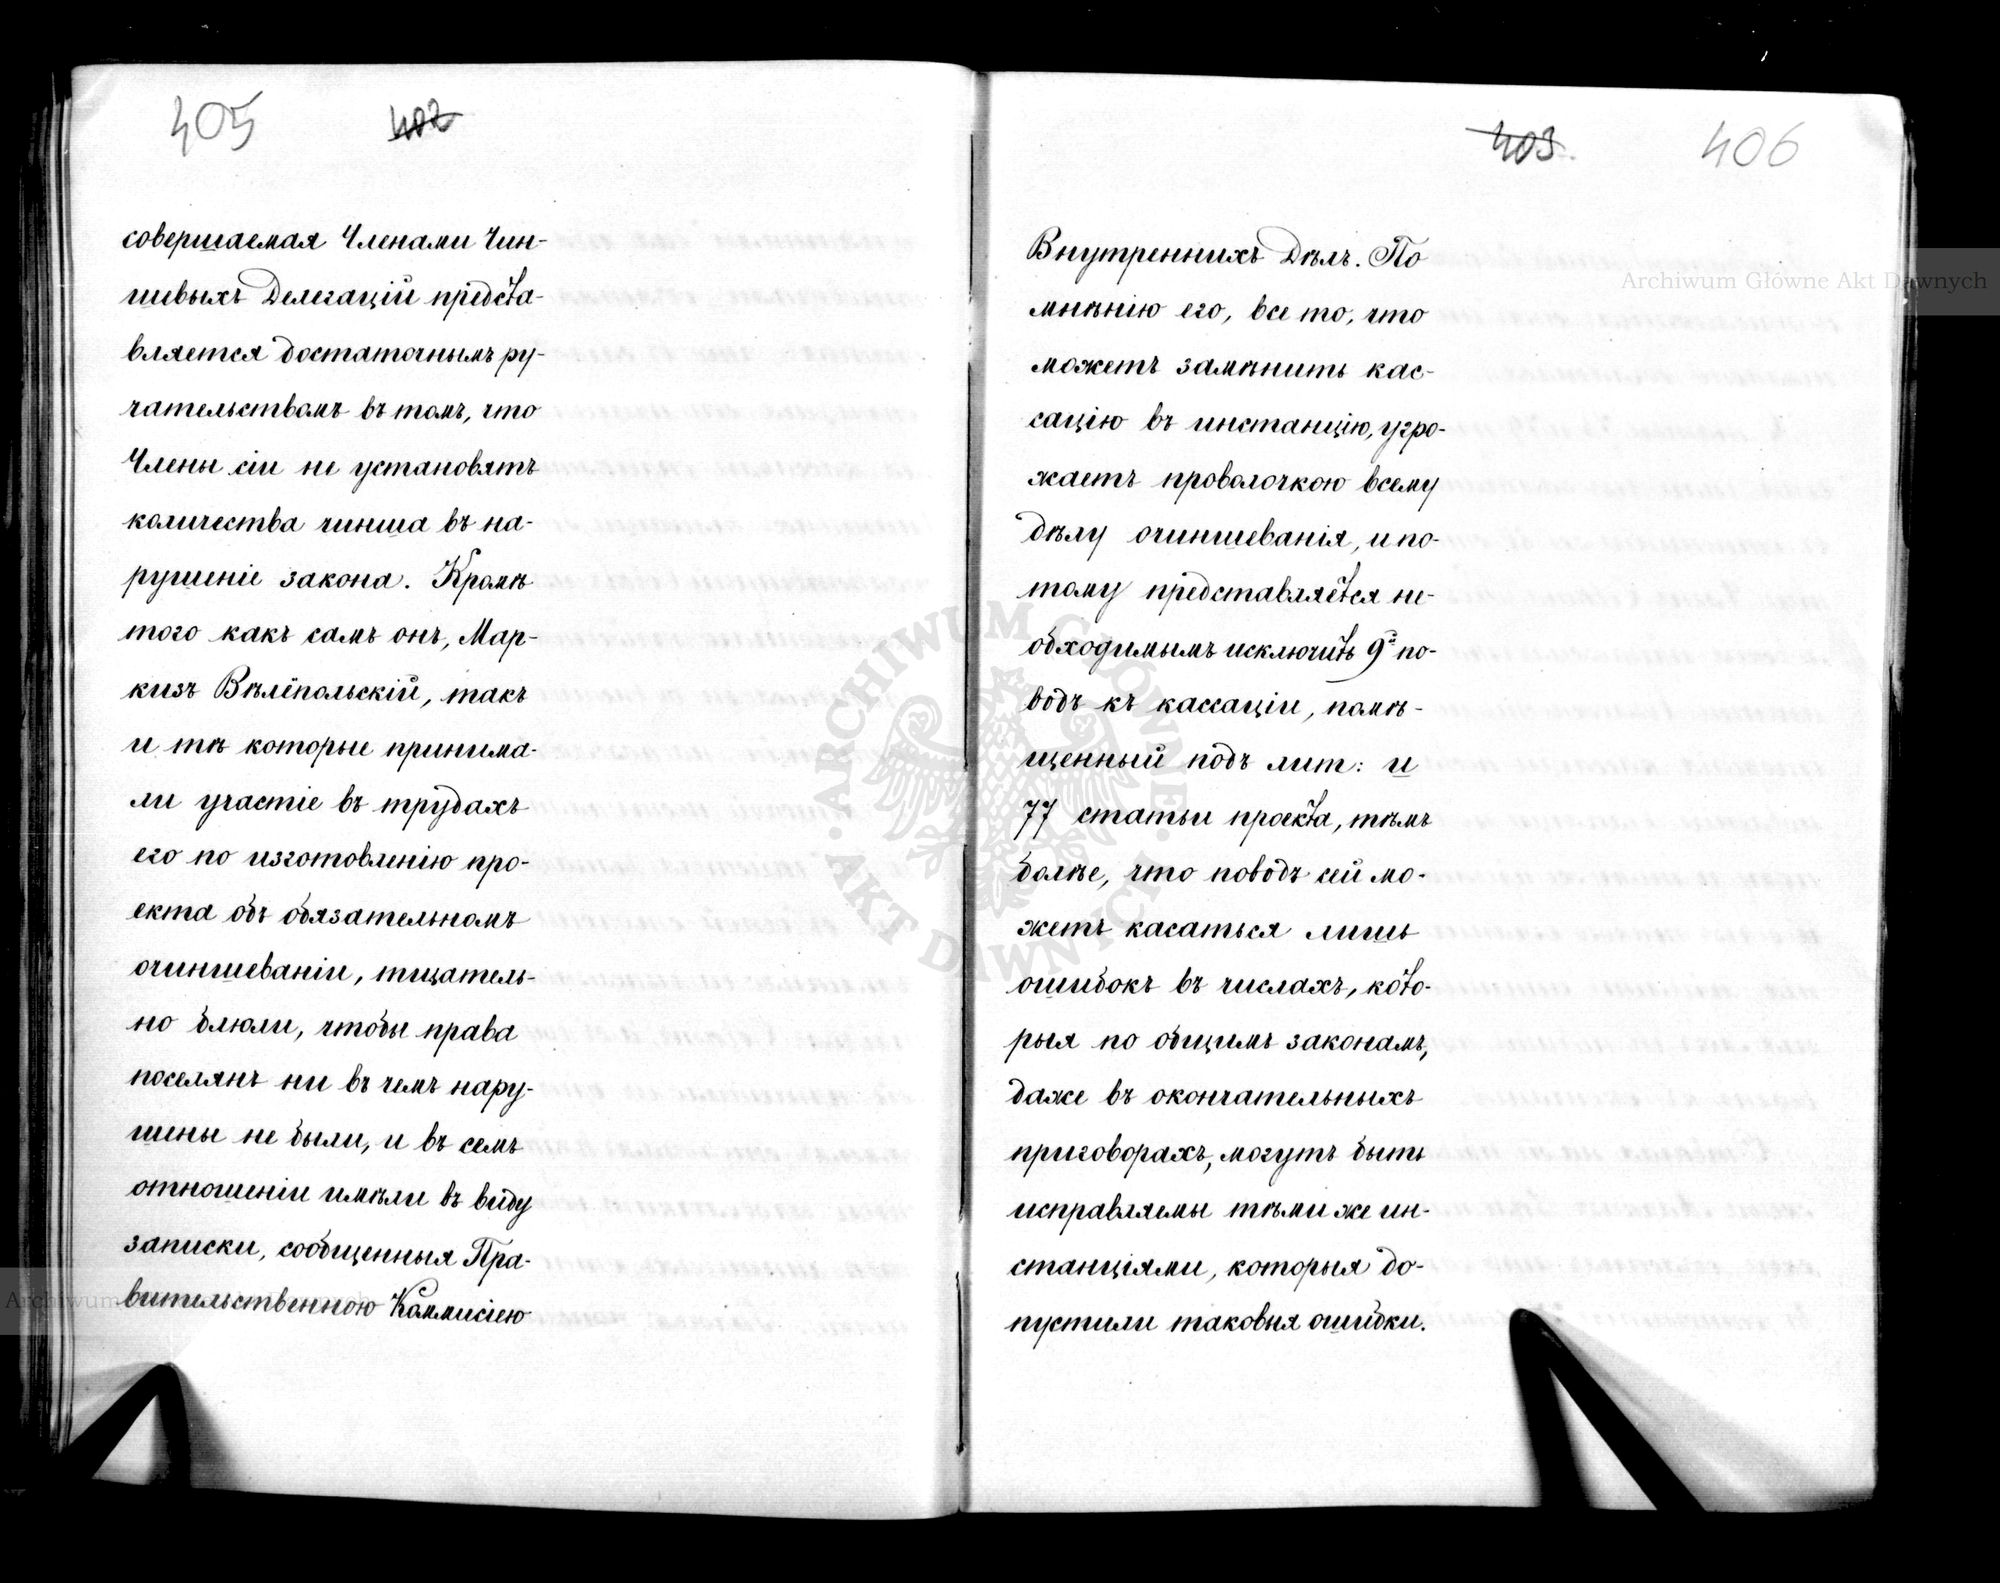 405 402
совершаемая Членами Чин-
шевыхъ Делегацій предста-
вляется достаточнымъ ру-
чательствомъ въ томъ, что
Члены сіи не установятъ
количества чинша въ на-
рушеніе закона. Кромѣ
того какъ самъ онъ, Мар-
кизъ Вѣлёпольскій, такъ
и тѣ которые принима-
ли участіе въ трудахъ
его по изготовленію про-
екта объ обязательномъ
очиншеваніи, тщатель-
но блюли, чтобы права
поселянъ ни въ чемъ нару-
шены не были, и въ семъ
отношеніи имѣли въ виду
записки, сообщенныя Пра-
вительственною Коммисіею
403. 406
Внутреннихъ Дѣлъ. По
мнѣнію его, все то, что
можетъ замѣнить кас-
сацію въ инстанцію, угро-
жаетъ проволочкою всему
дѣлу очиншеванія, и по-
тому представляется не-
обходимымъ исключить 9й по-
водъ къ кассаціи, помѣ-
щенный подъ лит: и
77 статьи проекта, тѣмъ
болѣе, что поводъ сей мо-
жетъ касаться лишь
ошибокъ въ числахъ, кото-
рыя по общимъ законамъ,
даже въ окончательныхъ
приговорахъ, могутъ быть
исправляемы тѣми же ин-
станціями, которыя до-
пустили таковыя ошибки.
Archiwum Główne Akt Dawnych
ARCHIWUM GŁÓWNE · AKT DAWNYCH ·
Archiwum Główne Akt Dawnych